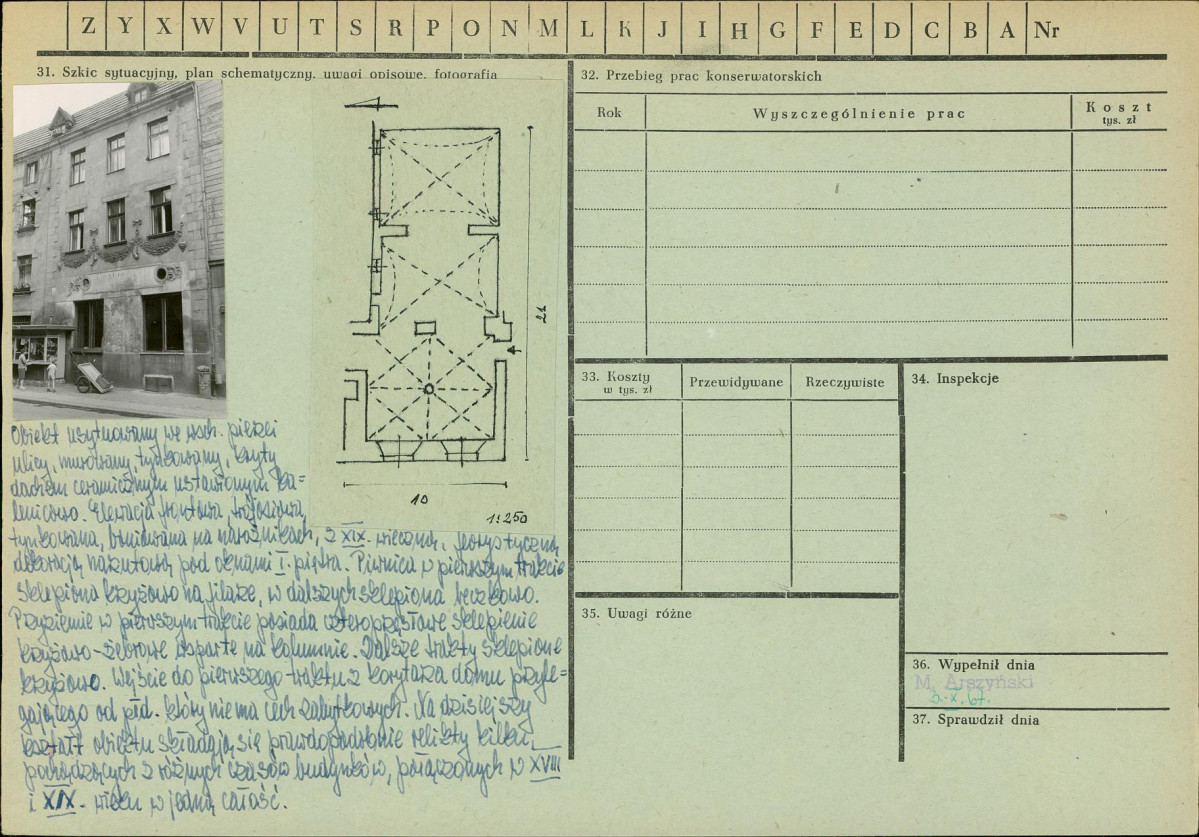 Z Y X W V U T S R P O N M L K J I H G F E D C B A Nr
31. Szkic sytuacyjny, plan schematyczny, uwagi opisowe, fotografia
21
10
1:250
Obiekt usytuowany we wsch. pierzei
ulicy, murowany, tynkowany, kryty
dachem ceramicznym ustawionym ka=
lenicowo. Elewacja frontowa, trójosiowa,
tynkowana, boniowana na narożnikach, z XIX. wieczną,
dekoracją narzutową pod oknami I. piętra. Piwnica w pierwszym trakcie
sklepiona krzyżowo na filarze, w dalszych sklepiona beczkowo.
Przyziemie w pierwszym trakcie posiada czteroprzęsłowe sklepienie
krzyżowo-żebrowe wsparte na kolumnie. Dalsze trakty sklepione
krzyżowo. Wejście do pierwszego traktu z korytarza domu przyle=
gającego od płd. który nie ma cech zabytkowych. Na dzisiejszy
kształt obiektu składają się prawdopodobnie relikty kilku,
pochodzących z różnych czasów budynków, połączonych w XVIII
i XIX. wieku w jedną całość.
32. Przebieg prac konserwatorskich
Rok
Wyszczególnienie prac
Koszt
tys. zł
33. Koszty
w tys. zł
Przewidywane
Rzeczywiste
34. Inspekcje
35. Uwagi różne
36. Wypełnił dnia
M. Arszyński
5.X.67.
37. Sprawdził dnia